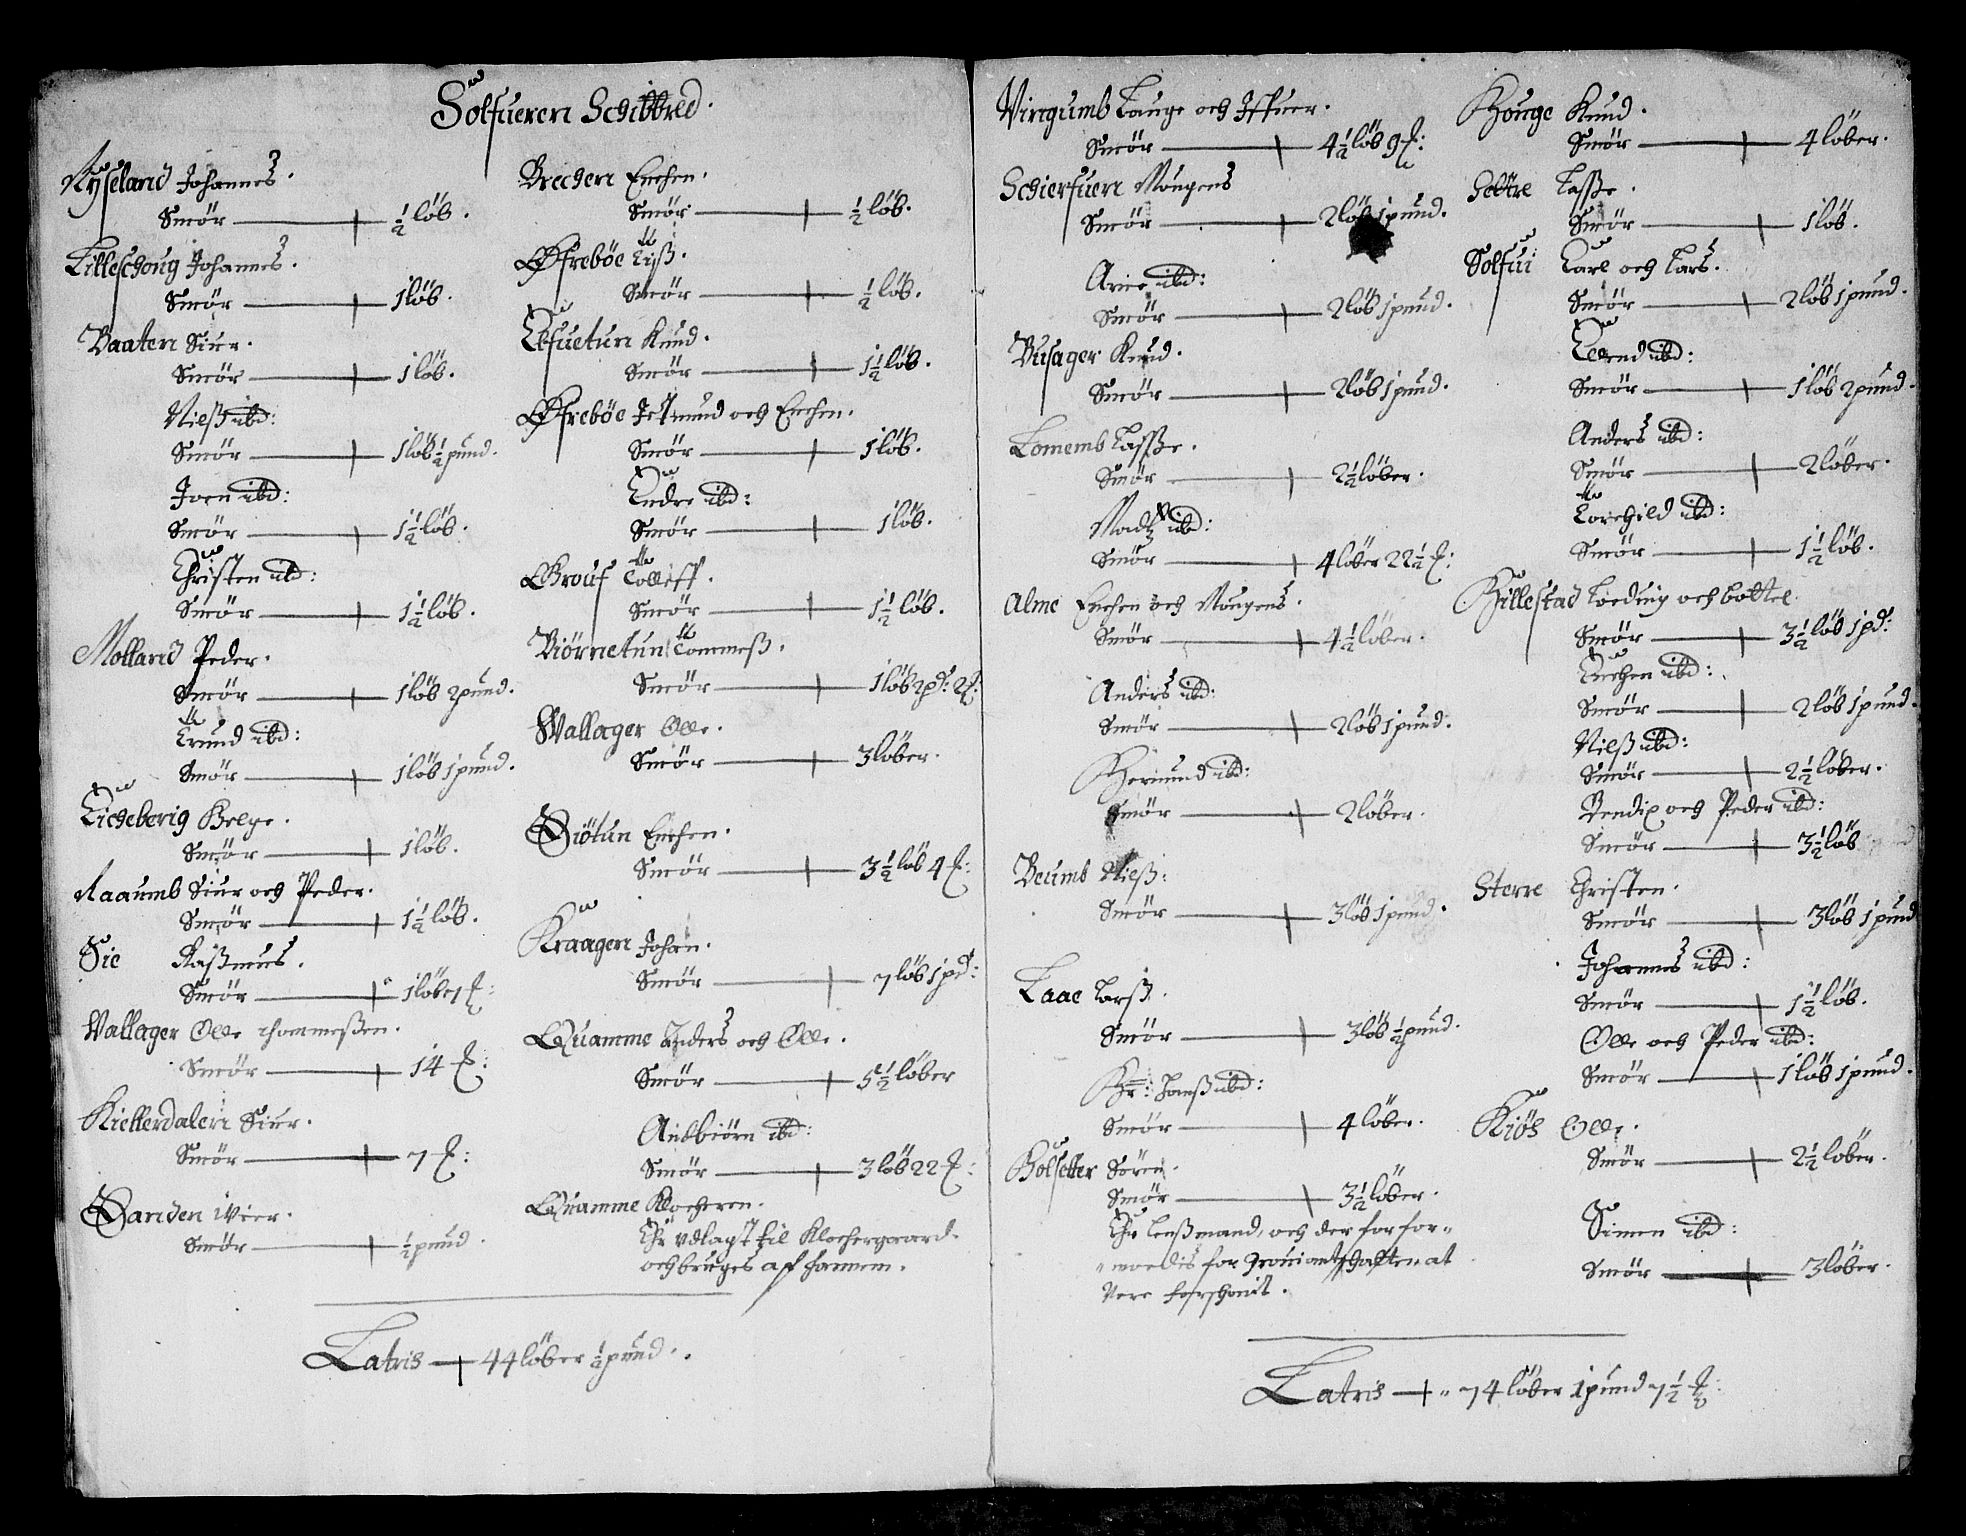 Sölfueren Schibbred.
Nÿseland Johannes.
Smör — ½ löb.
Lilleschoug Johannes.
Smör — 1 löb.
Baaten Siur.
Smör — 1 löb.
Nielß ibd:
Smör — 1 löb ½ pund.
Joen ibd:
Smör — 1½ löb.
Christen ibd:
Smör — 1½ löb.
Molland Peder.
Smör — 1 löb 2 pund.
Trund ibd:
Smör — 1 löb 1 pund.
Eicheberig Helge.
Smör — 1 löb.
Raaumb Siur och Peder.
Smör — 1½ löb.
Sie Raßmus.
Smör — 1 löb 7 ℔:
Vallager Olle thommeßen.
Smör — 14 ℔:
Kiellerdalen Siur.
Smör — 7 ℔:
Sanden Iver.
Smör — ½ pund.
Brechen Erichen.
Smör — ½ löb.
Öfreböe Liß.
Smör — ½ löb.
Efuetun Knud.
Smör — 1½ löb.
Öfreböe Jetmund och Erichen.
Smör — 1 löb.
Endre ibd:
Smör — 1 löb.
Grouf Tolleff.
Smör — 1½ löb.
Biörnetun Tommeß.
Smör — 1 löb 2 pd: 2 ℔:
Wallager Olle.
Smör — 3 löber.
Siötun Erichen.
Smör — 3½ löb 4 ℔:
Kraagen Johan.
Smör — 7 löb 1 pd:
Quamme Anders och Olle.
Smör — 5½ löber
Anbiörn ibd:
Smör — 3 löb 22 ℔:
Quamme Klocheren.
Er udlagt til Klochergaard.
och bruges aff hannem.
Latris — 44 löber ½ pund.
Vingumb Lauge och Ifuer.
Smör — 4½ löb 9 ℔:
Schierfuen Mougens
Smör — 2 löb 1 pund.
Arne ibd:
Smör — 2 löb 1 pund.
Busager Knud.
Smör — 2 löb 1 pund.
Lomemb Laßße.
Smör — 2½ löber.
Madtz ibd:
Smör — 4 löber 22½ ℔:
Alme Erichen och Mougens.
Smör — 4½ löber.
Anders ibd:
Smör — 2 löb 1 pund.
Hermund ibd:
Smör — 2 löber.
Beumb Nielß:
Smör — 3 löb 1 pund.
Laae Larß.
Smör — 3 löb ½ pund.
Hr: Hanß ibd:
Smör — 4 löber.
Holsetter Sören.
Smör — 3½ löber.
Er lenßmand, och der for for-
moedis for Proviantschatten at
Vere forschonit.
Houge Knud.
Smör — 4 löber.
Settre Laßße.
Smör — 1 löb.
Solfui Carl och Lars.
Smör — 2 löb 1 pund.
Ellend ibd:
Smör — 1 löb 2 pund.
Anders ibd:
Smör — 2 löber.
Torchild ibd:
Smör — 1½ löb.
Hillestad Loeding och bottel.
Smör — 3½ löb 1 pd:
Erichen ibd:
Smör — 2 löb 1 pund.
Nielß ibd:
Smör — 2½ löber.
Bendix och Peder ibd:
Smör — 3½ löb
Sterre Christen.
Smör — 3 löb 1 pund
Johannes ibd:
Smör — 1½ löb.
Olle och Peder ibd:
Smör — 1 löb 1 pund.
Kiös Olle.
Smör — 2½ löber.
Simen ibd:
Smör — 3 löber.
Latris — 74 löber 1 pund 7½ ℔: